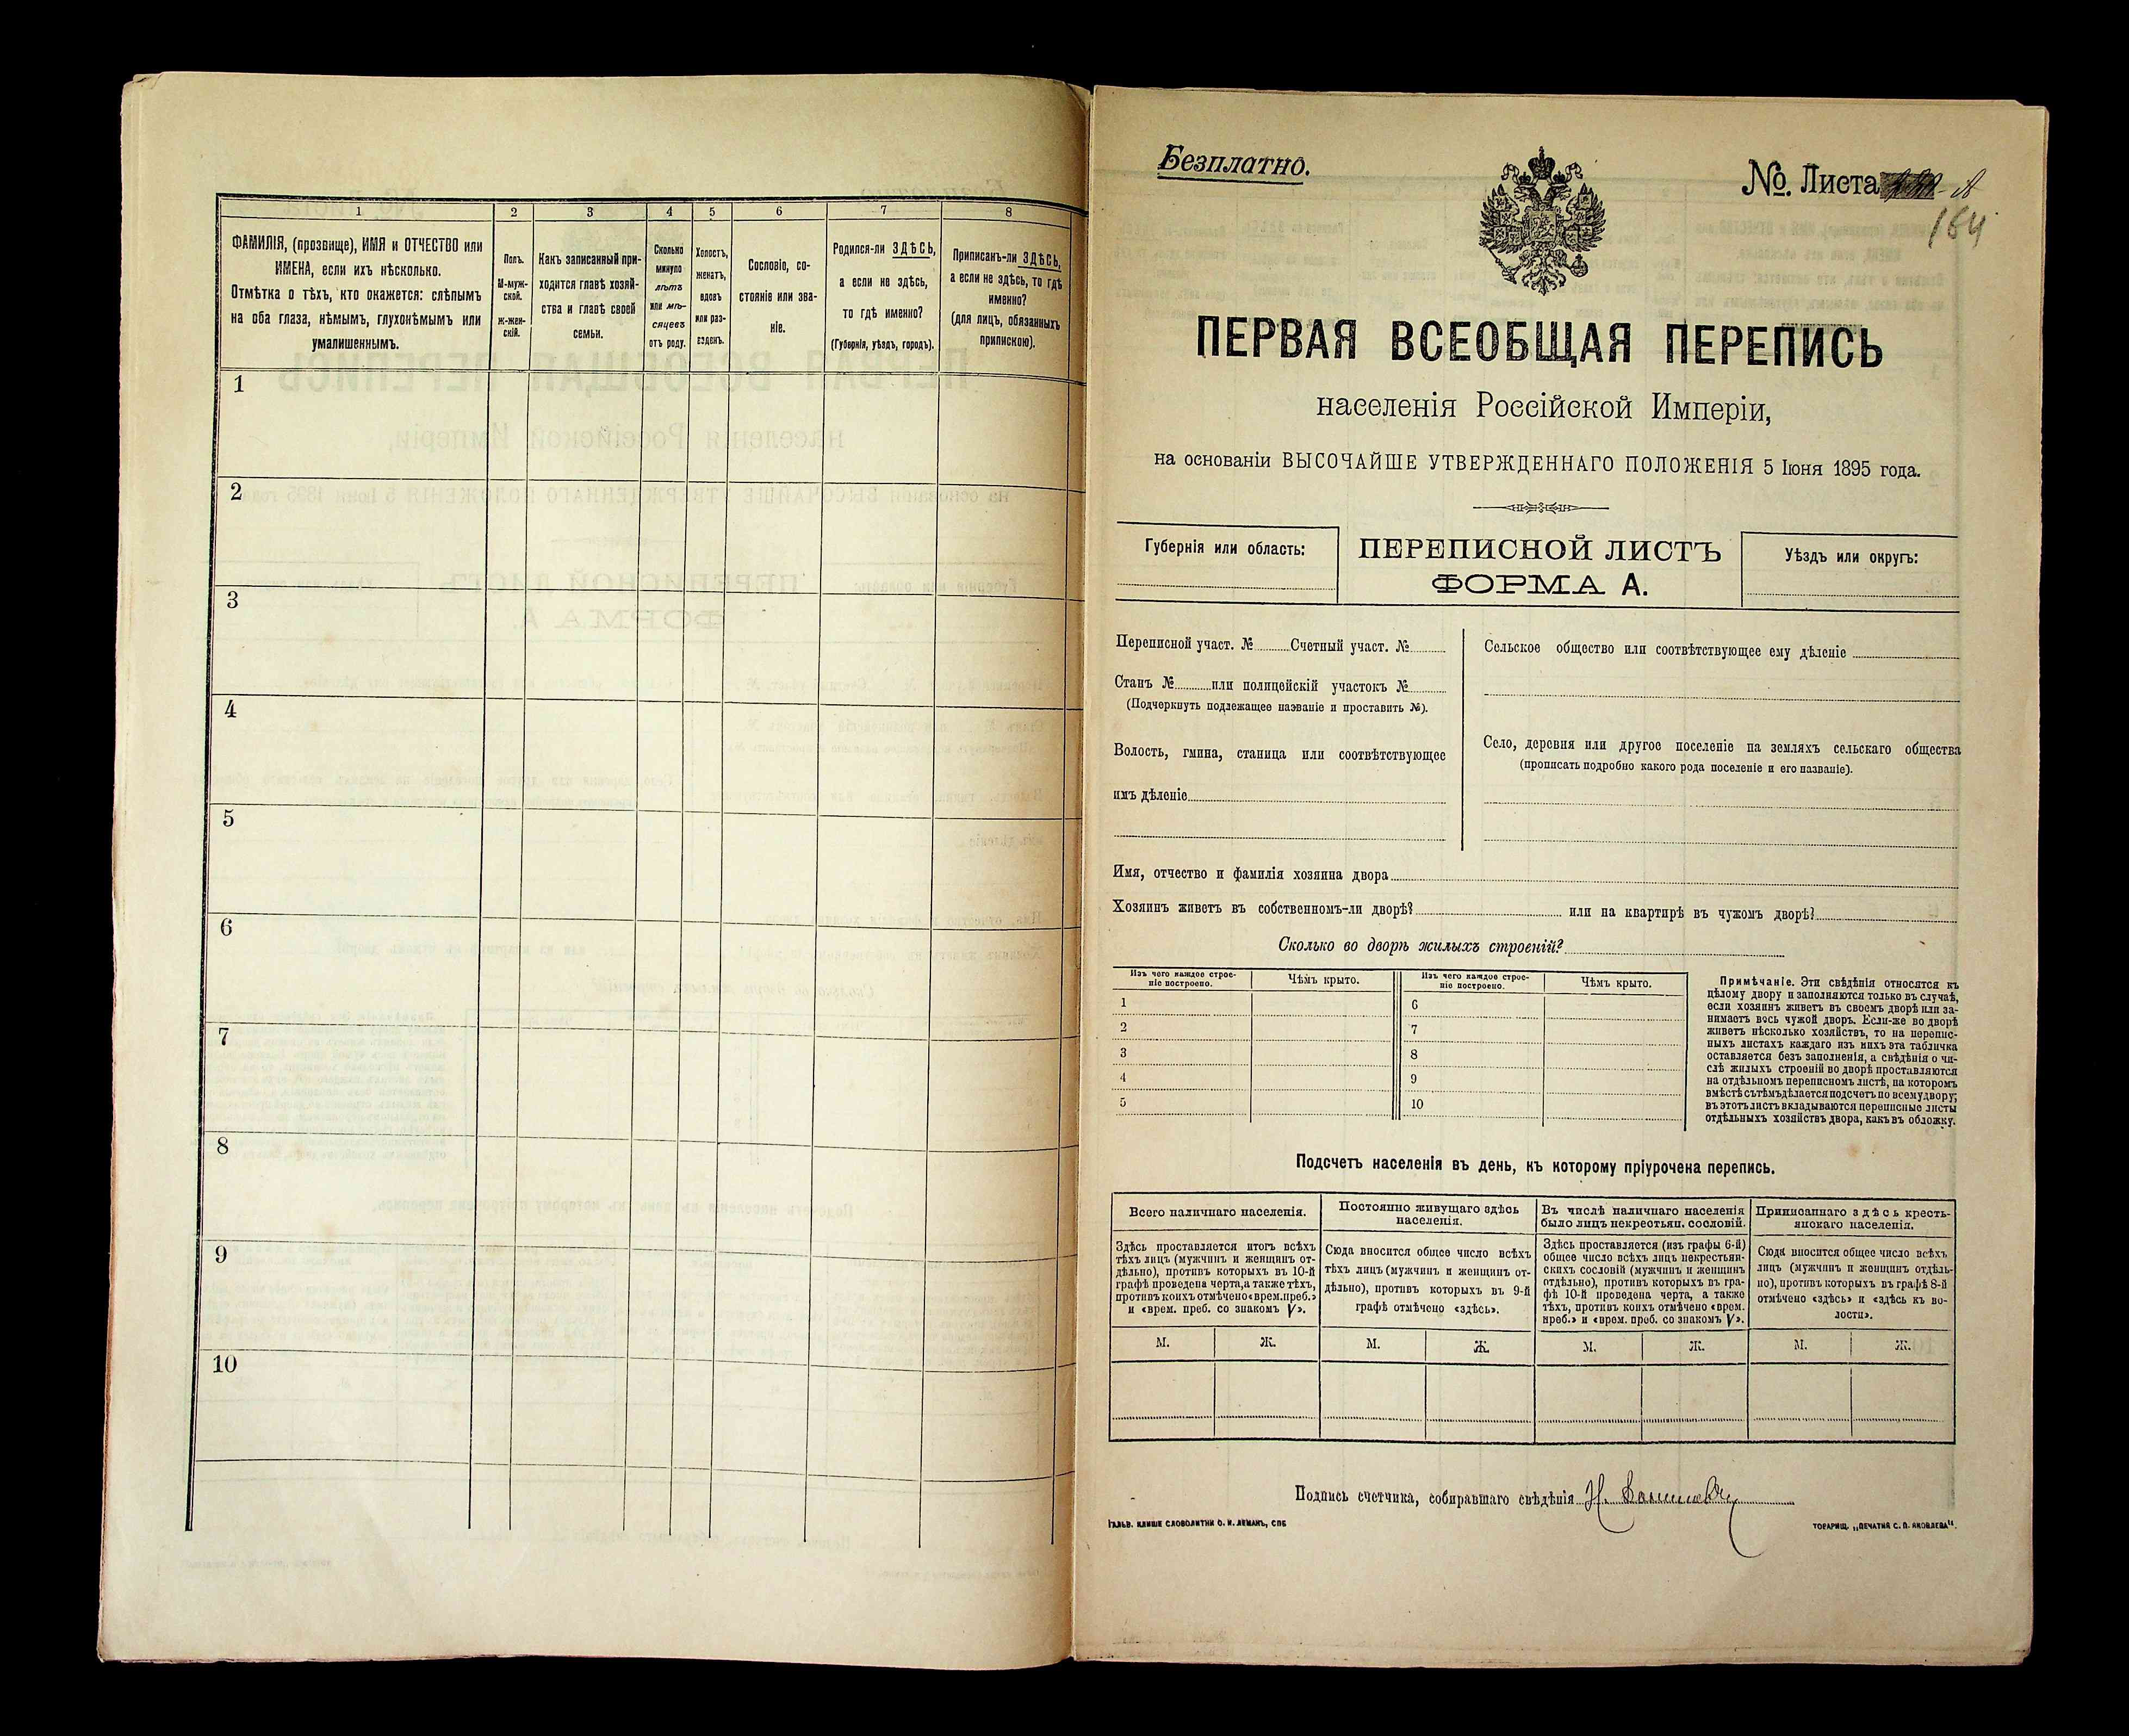 1
2
3
4
5
6
7
8
ФАМИЛІЯ, (прозвище), ИМЯ и ОТЧЕСТВО или
ИМЕНА, если ихъ нѣсколько.
Отмѣтка о тѣхъ, кто окажется: слѣпымъ
на оба глаза, нѣмымъ, глухонѣмымъ или
умалишеннымъ.
Полъ.
М-муж-
ской.
ж-жен-
скій.
Какъ записанный при-
ходится главѣ хозяй-
ства и главѣ своей
семьи.
Сколько
минуло
лѣтъ
или мѣ-
сяцевъ
отъ роду.
Холостъ,
женатъ,
вдовъ
или раз-
веденъ.
Сословіе, со-
стояніе или зва-
ніе.
Родился-ли ЗДѢСЬ,
а если не здѣсь,
то гдѣ именно?
(Губернія, уѣздъ, городъ).
Приписанъ-ли ЗДѢСЬ,
а если не здѣсь, то гдѣ
именно?
(для лицъ, обязанныхъ
припискою).
1
2
3
4
5
6
7
8
9
10
Безплатно.
№. Листа
164
ПЕРВАЯ ВСЕОБЩАЯ ПЕРЕПИСЬ
населенія Россійской Имперіи,
на основаніи ВЫСОЧАЙШЕ УТВЕРЖДЕННАГО ПОЛОЖЕНІЯ 5 Іюня 1895 года.
Губернія или область:
ПЕРЕПИСНОЙ ЛИСТЪ
ФОРМА А.
Уѣздъ или округъ:
Переписной участ. № Счетный участ. №
Станъ № или полицейскій участокъ №
(Подчеркнуть подлежащее названіе и проставить №).
Волость, гмина, станица или соотвѣтствующее
имъ дѣленіе
Сельское общество или соотвѣтствующее ему дѣленіе
Село, деревня или другое поселеніе на земляхъ сельскаго общества
(прописать подробно какого рода поселеніе и его названіе).
Имя, отчество и фамилія хозяина двора
Хозяинъ живетъ въ собственномъ-ли дворѣ? или на квартирѣ въ чужомъ дворѣ?
Сколько во дворѣ жилыхъ строеній?
Изъ чего каждое строе-
ніе построено.
Чѣмъ крыто.
Изъ чего каждое строе-
ніе построено.
Чѣмъ крыто.
1
2
3
4
5
6
7
8
9
10
Примѣчаніе. Эти свѣдѣнія относятся къ
цѣлому двору и заполняются только въ случаѣ,
если хозяинъ живетъ въ своемъ дворѣ или за-
нимаетъ весь чужой дворъ. Если-же во дворѣ
живетъ нѣсколько хозяйствъ, то на перепис-
ныхъ листахъ каждаго изъ нихъ эта табличка
оставляется безъ заполненія, а свѣдѣнія о чи-
слѣ жилыхъ строеній во дворѣ проставляются
на отдѣльномъ переписномъ листѣ, на которомъ
вмѣстѣ съ тѣмъ дѣлается подсчетъ по всему двору;
въ этотъ листъ вкладываются переписные листы
отдѣльныхъ хозяйствъ двора, какъ въ обложку.
Подсчетъ населенія въ день, къ которому пріурочена перепись.
Всего наличнаго населенія.
Здѣсь проставляется итогъ всѣхъ
тѣхъ лицъ (мужчинъ и женщинъ от-
дѣльно), противъ которыхъ въ 10-й
графѣ проведена черта, а также тѣхъ,
противъ коихъ отмѣчено «врем. преб.»
и «врем. преб. со знакомъ V».
Постоянно живущаго здѣсь
населенія.
Сюда вносится общее число всѣхъ
тѣхъ лицъ (мужчинъ и женщинъ от-
дѣльно), противъ которыхъ въ 9-й
графѣ отмѣчено «здѣсь».
Въ числѣ наличнаго населенія
было лицъ некрестьян. сословій.
Здѣсь проставляется (изъ графы 6-й)
общее число всѣхъ лицъ некрестьян-
скихъ сословій (мужчинъ и женщинъ
отдѣльно), противъ которыхъ въ гра-
фѣ 10-й проведена черта, а также
тѣхъ, противъ коихъ отмѣчено «врем.
преб.» и «врем. преб. со знакомъ V».
Приписаннаго здѣсь кресть-
янскаго населенія.
Сюда вносится общее число всѣхъ
лицъ (мужчинъ и женщинъ отдѣль-
но), противъ которыхъ въ графѣ 8-й
отмѣчено «здѣсь» и «здѣсь къ во-
лости».
М. Ж. М. Ж. М. Ж. М. Ж.
Подпись счетчика, собиравшаго свѣдѣнія Н.
ГАЛЬВ. КЛИШЕ СЛОВОЛИТНИ О. И. ЛЕМАНЪ, СПБ
ТОВАРИЩ. „ПЕЧАТНЯ С. П. ЯКОВЛЕВА".